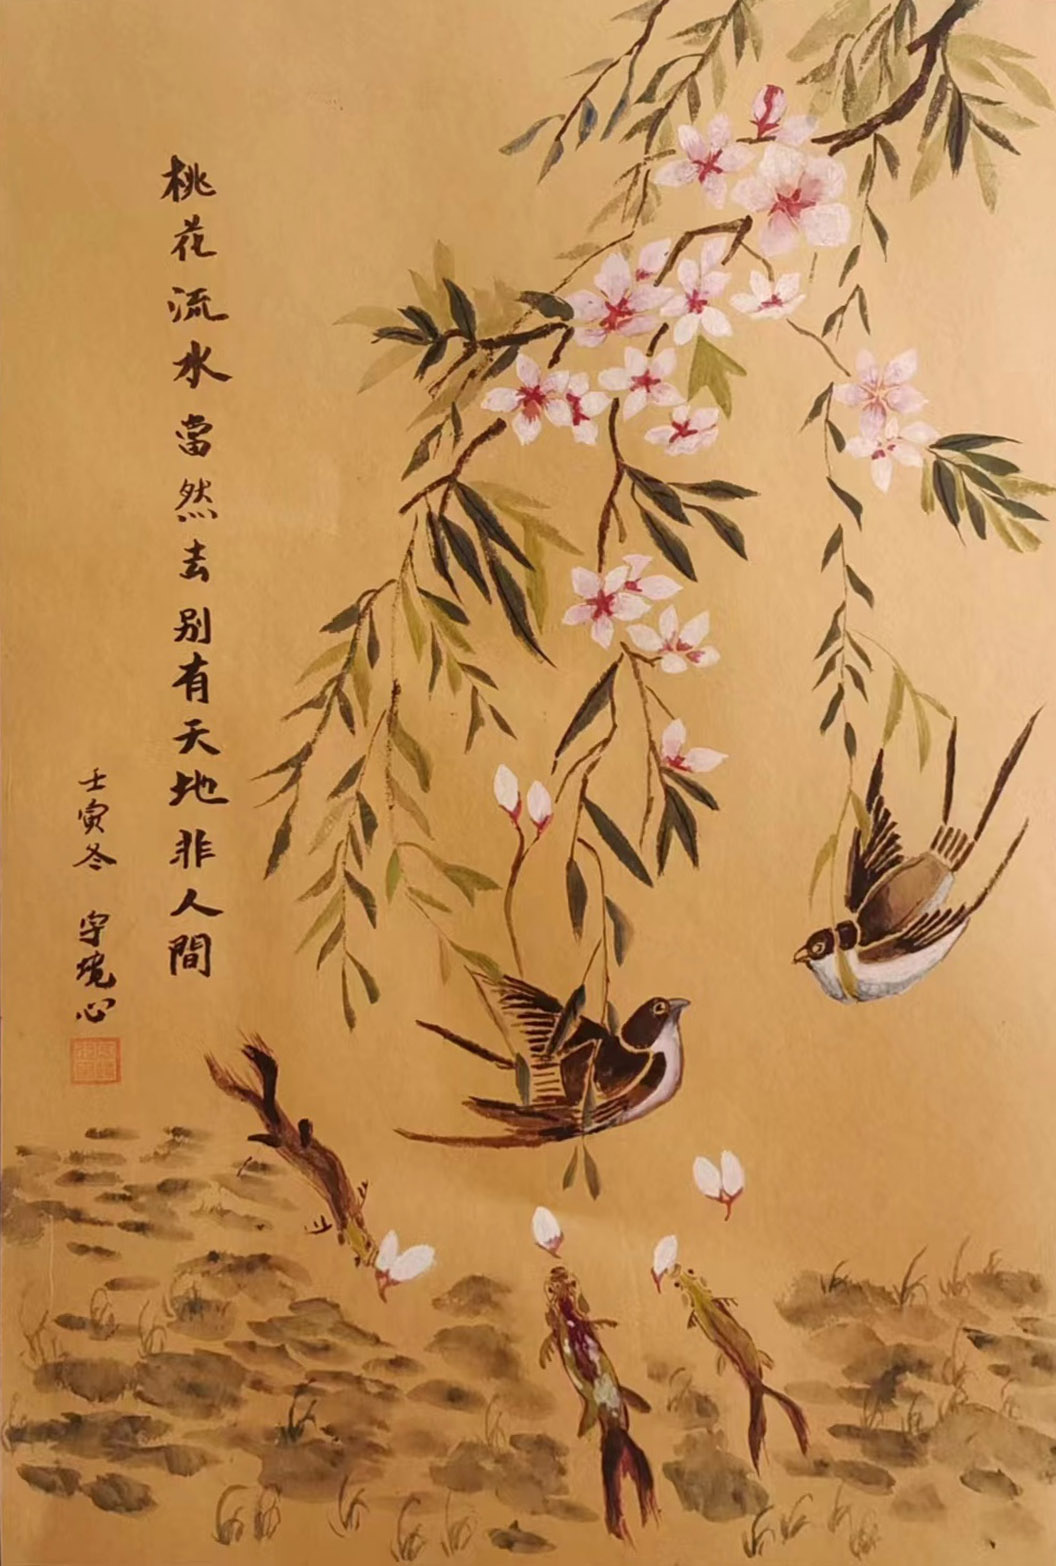 桃花流水當然去别有天地非人間
壬寅冬 境心